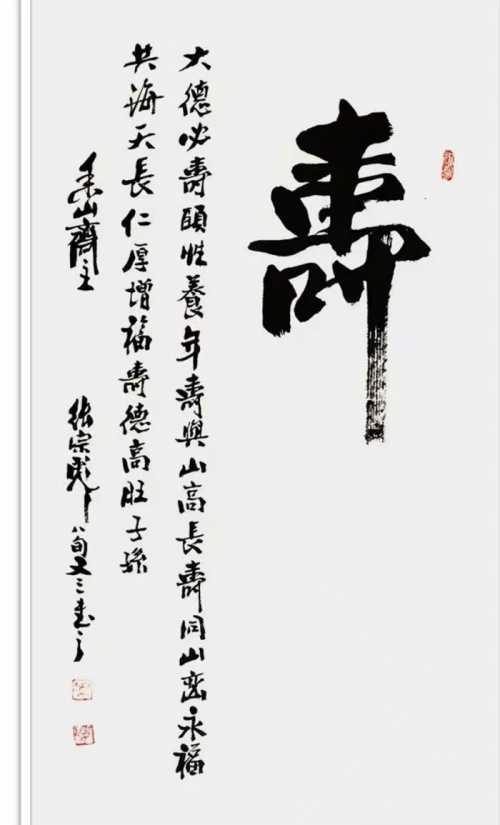 壽
大德必壽頤性養年壽與山高長壽同山巒永福
共海天長仁厚增福壽德高旺子孫
山齋主
張宗彪八旬又三書